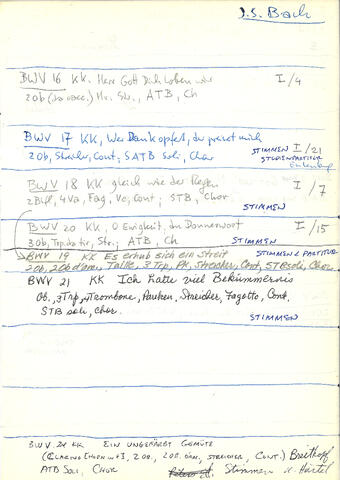 J.S. Bach
BWV 16 KK. Herr Gott Dich loben wir I/4
2Ob (da cacc.) Hr, Str., ATB, Ch
BWV 17 KK, Wer Dank opfert, der preiset mich STIMMEN I/21
2Ob, Streicher, Cont; SATB Soli, Chor STUDIENPARTITUR
Eulenburg
BWV 18 KK gleich wie der Regen I/7
2Blfl, 4Va, Fag, Vc, Cont; STB, Chor. STIMMEN
BWV 20 KK, O Ewigkeit, du Donnerwort I/15
3Ob, Trp da tir, Str; ATB, Ch STIMMEN
BWV 19 KK Es erhub sich ein Streit STIMMEN & PARTITUR
2Ob, 2Ob d'am, Taille, 3 Trp, Pk, Streicher, Cont, STB soli, Chor
BWV 21 KK Ich hatte viel Bekümmernis
Ob., 3Trp, 4Trombone, Pauken, Streicher, Fagotto, Cont.
STB soli, Chor. STIMMEN
BWV 24 KK EIN UNGEFÄRBT GEMÜTE
(CLARINO (HORN in F), 2 OB., 2 OB. D'AM, STREICHER, CONT.) Breitkopf
ATB SOLI, CHOR Stimmen u. Härtel